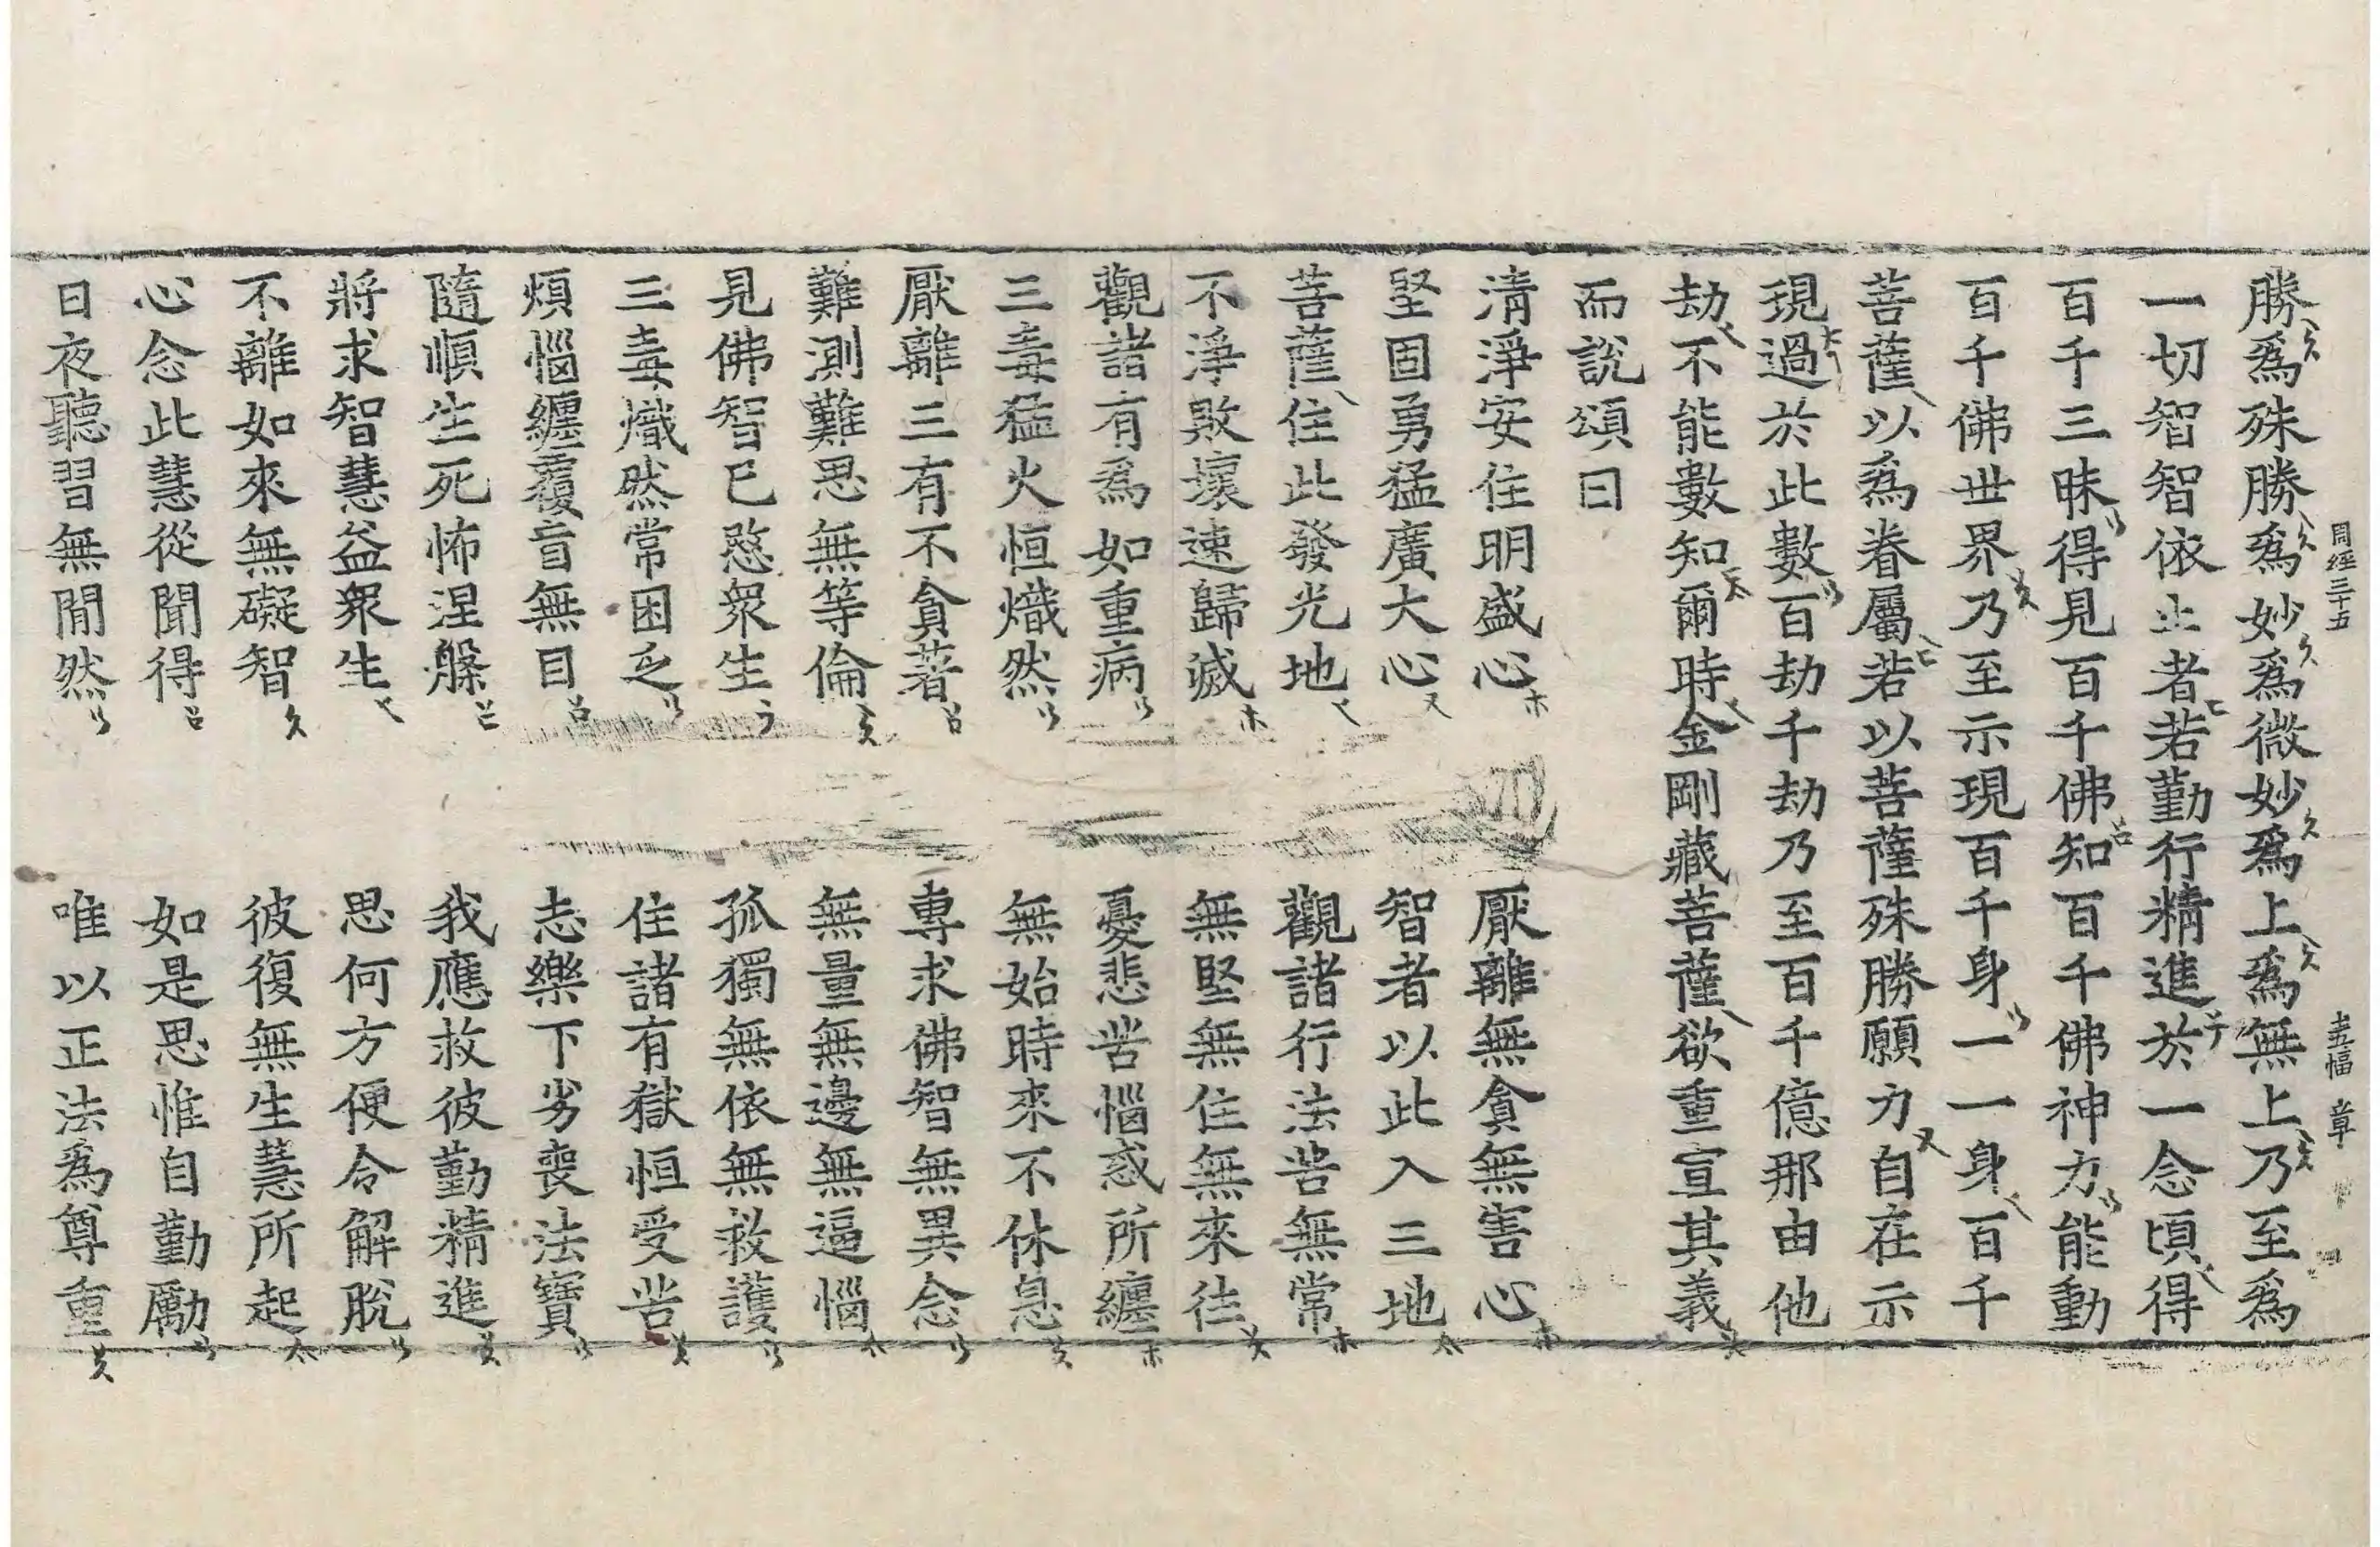 周經三十五　十五幅　章
勝爲殊勝爲妙爲微妙爲上爲無上乃至爲
一切智智依止者若勤行精進於一念頃得
百千三昧得見百千佛知百千佛神力能動
百千佛世界乃至示現百千身一一身百千
菩薩以爲眷屬若以菩薩殊勝願力自在示
現過於此數百劫千劫乃至百千億那由他
劫不能數知爾時金剛藏菩薩欲重宣其義
而說頌曰
清淨安住明盛心　厭離無貪無害心
堅固勇猛廣大心　智者以此入三地
菩薩住此發光地　觀諸行法苦無常
不淨敗壞速歸滅　無堅無住無來往
觀諸有爲如重病　憂悲苦惱惑所纏
三毒猛火恒熾然　無始時來不休息
厭離三有不貪著　專求佛智無異念
難測難思無等倫　無量無邊無逼惱
見佛智已愍衆生　孤獨無依無救護
三毒熾然常困乏　住諸有獄恒受苦
煩惱纏覆盲無目　志樂下劣喪法寶
隨順生死怖涅槃　我應救彼勤精進
將求智慧益衆生　思何方便令解脫
不離如來無礙智　彼復無生慧所起
心念此慧從聞得　如是思惟自勤勵
日夜聽習無閒然　唯以正法爲尊重